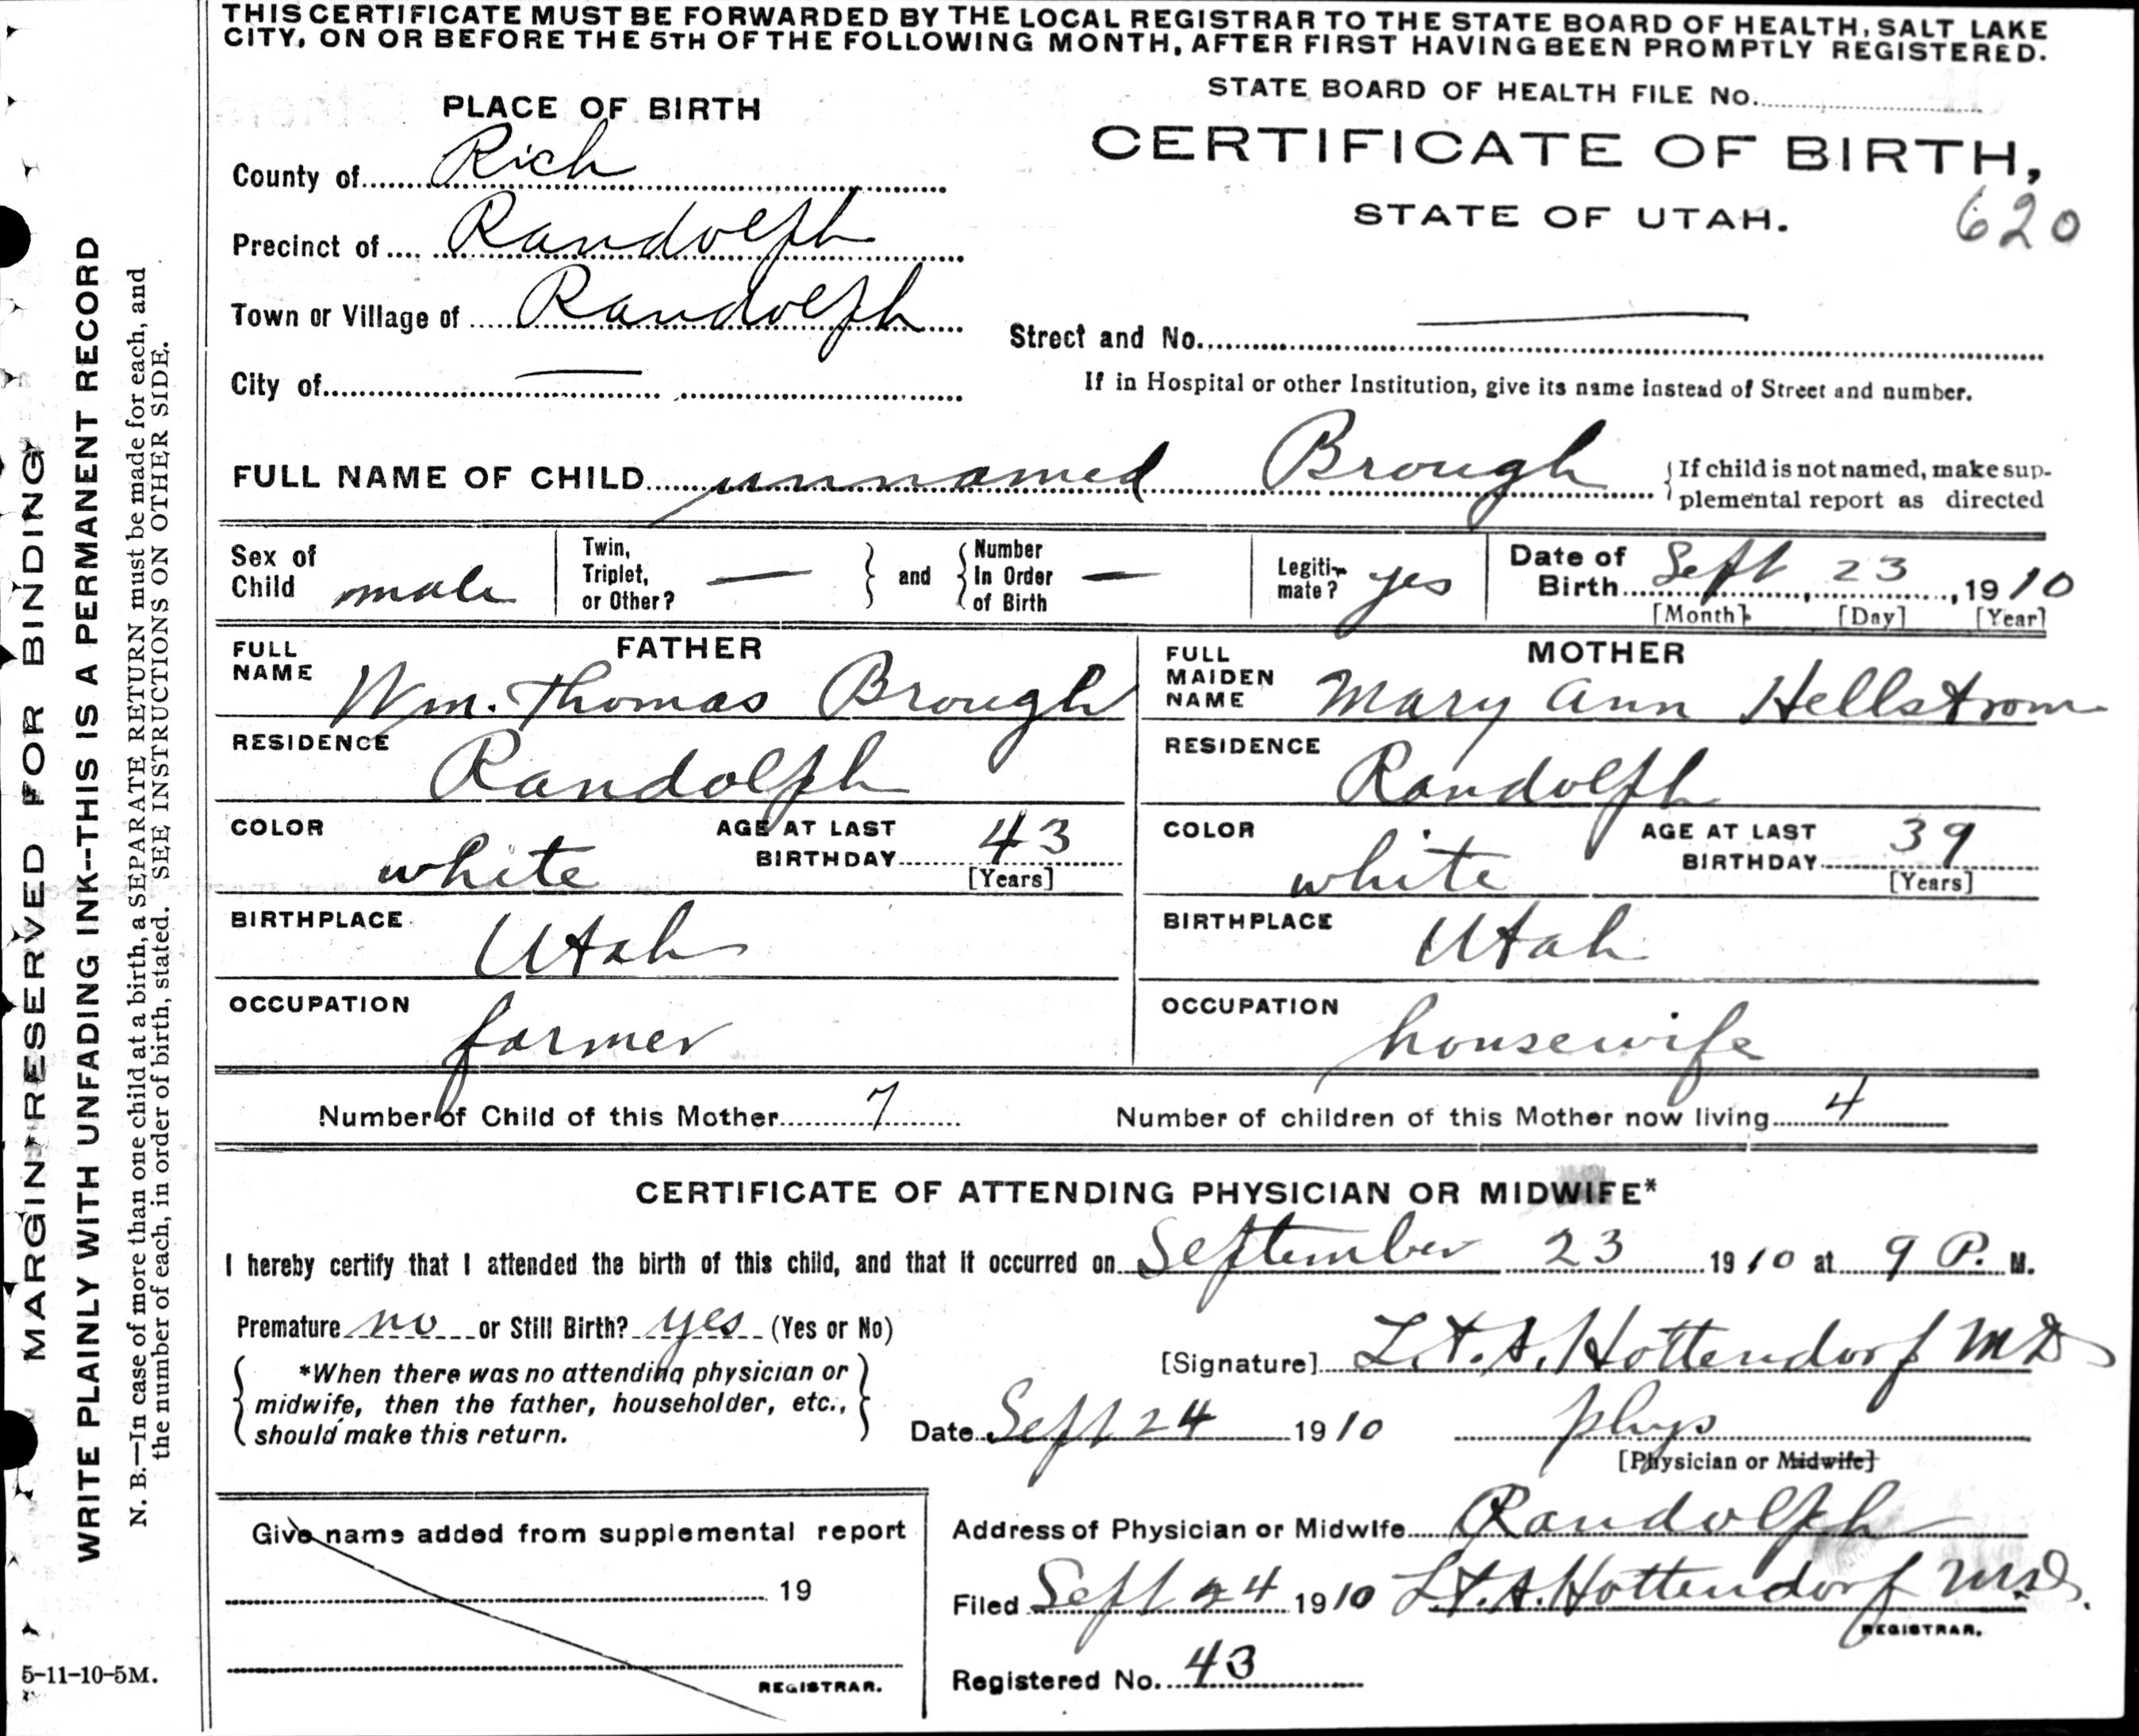 THIS CERTIFICATE MUST BE FORWARDED BY THE LOCAL REGISTRAR TO THE STATE BOARD OF HEALTH, SALT LAKE
CITY, ON OR BEFORE THE 5TH OF THE FOLLOWING MONTH, AFTER FIRST HAVING BEEN PROMPTLY REGISTERED.
STATE BOARD OF HEALTH FILE No.
PLACE OF BIRTH
CERTIFICATE OF BIRTH,
STATE OF UTAH.
620
County of Rich
Precinct of Randolph
Town or Village of Randolph
Street and No. —
City of —
If in Hospital or other Institution, give its name instead of Street and number.
FULL NAME OF CHILD unnamed Brough
If child is not named, make sup-
plemental report as directed
Sex of Child male
Twin, Triplet, or Other? — and Number In Order of Birth —
Legiti-mate? yes
Date of Birth Sept 23, 1910
[Month] [Day] [Year]
FATHER
FULL NAME Wm. Thomas Brough
RESIDENCE Randolph
COLOR white AGE AT LAST BIRTHDAY 43
[Years]
BIRTHPLACE Utah
OCCUPATION farmer
MOTHER
FULL MAIDEN NAME Mary Ann Hellstrom
RESIDENCE Randolph
COLOR white AGE AT LAST BIRTHDAY 39
[Years]
BIRTHPLACE Utah
OCCUPATION housewife
Number of Child of this Mother 7 Number of children of this Mother now living 4
CERTIFICATE OF ATTENDING PHYSICIAN OR MIDWIFE*
I hereby certify that I attended the birth of this child, and that it occurred on September 23 1910 at 9 P. M.
Premature no or Still Birth? yes (Yes or No)
*When there was no attending physician or
midwife, then the father, householder, etc.,
should make this return.
[Signature] Hottendorf MD
Date Sept 24 1910 phys
[Physician or Midwife]
Address of Physician or Midwife Randolph
Filed Sept 24 1910 Hottendorf M.D.
REGISTRAR.
Registered No. 43
Give name added from supplemental report
19
REGISTRAR.
MARGIN RESERVED FOR BINDING
WRITE PLAINLY WITH UNFADING INK--THIS IS A PERMANENT RECORD
N. B.—In case of more than one child at a birth, a SEPARATE RETURN must be made for each, and
the number of each, in order of birth, stated. SEE INSTRUCTIONS ON OTHER SIDE.
5-11-10-5M.